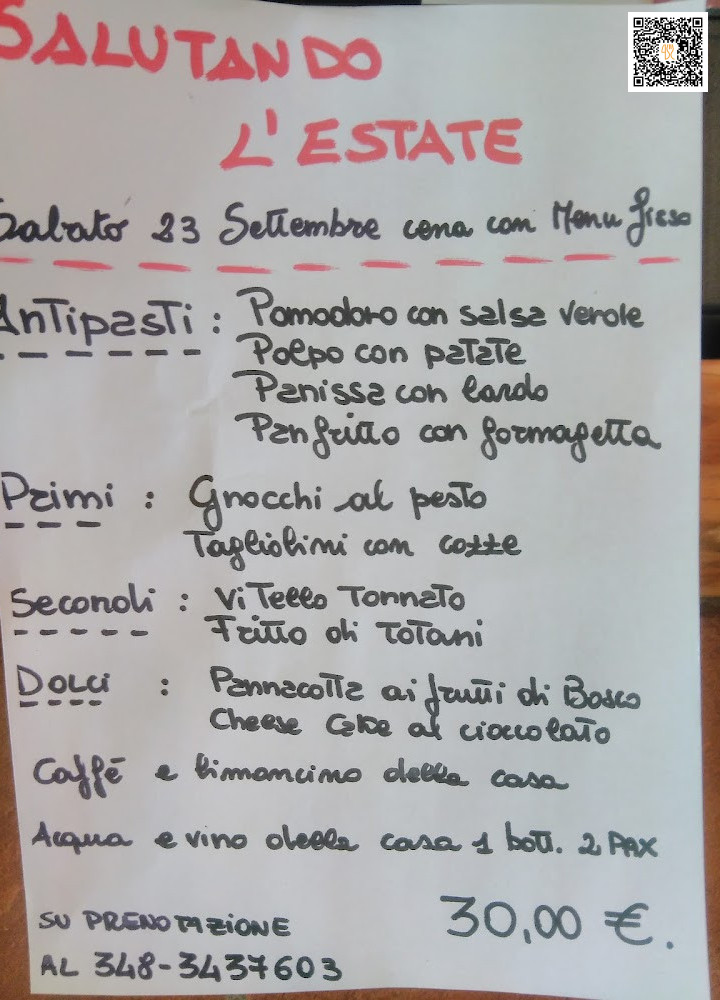 SALUTANDO
L'ESTATE
Sabato 23 Settembre cena con Menu fisso
Antipasti : Pomodoro con salsa verde
Polpo con patate
Panissa con lardo
Panfritto con formagetta
Primi : Gnocchi al pesto
Tagliolini con cozze
Secondi : Vitello Tonnato
Fritto di Totani
Dolci : Pannacotta ai frutti di Bosco
Cheese Cake al cioccolato
Caffé e limoncino della casa
Acqua e vino della casa 1 bott. 2 PAX
SU PRENOTAZIONE 30,00 €.
AL 348-3437603